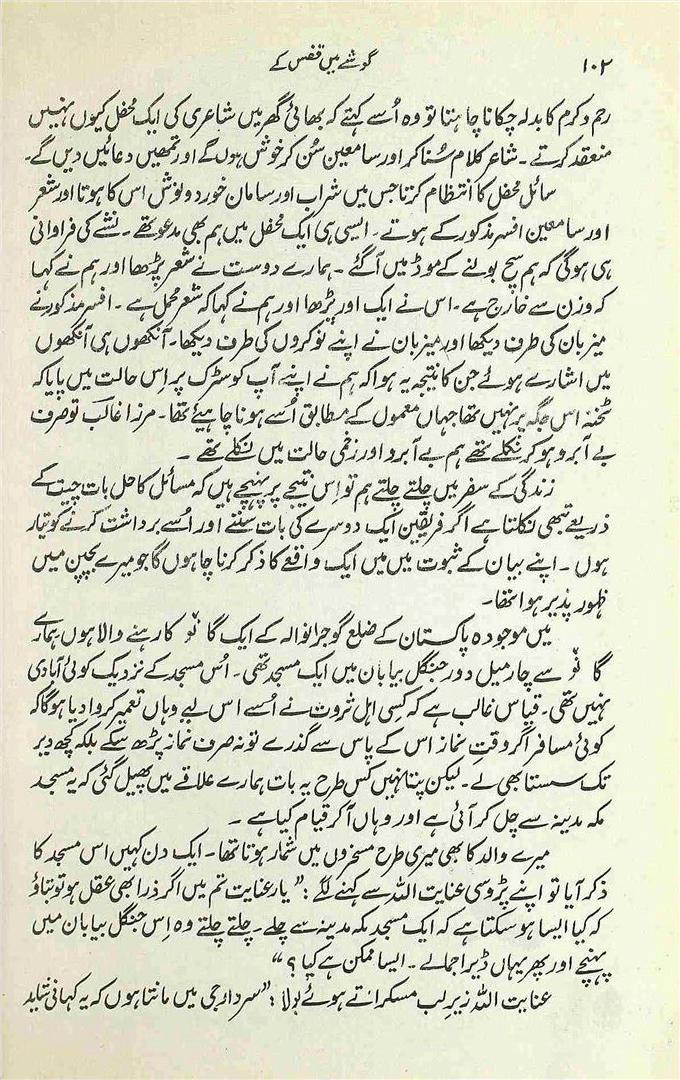 ۱۰۲
گوشے میں قفس کے
رحم و کرم کا بدلہ چکانا چاہتا تو وہ اُسے کہتے کہ بھائی گھر میں شاعری کی ایک محفل کیوں نہیں
منعقد کرتے ۔ شاعر کلام سُنا کر اور سامعین سُن کر خوش ہوں گے اور تمھیں دعائیں دیں گے۔
سائل محفل کا انتظام کرتا جس میں شراب اور سامان خورد و نوش اس کا ہوتا اور شعر
اور سامعین افسر مذکور کے ہوتے ۔ ایسی ہی ایک محفل میں ہم بھی مدعو تھے ۔ نشے کی فراوانی
ہی ہوگی کہ ہم سچ بولنے کے موڈ میں آگئے ۔ ہمارے دوست نے شعر پڑھا اور ہم نے کہا
کہ وزن سے خارج ہے ۔ اس نے ایک اور پڑھا اور ہم نے کہا کہ شعر مہمل ہے ۔ افسر مذکور نے
میزبان کی طرف دیکھا اور میزبان نے اپنے نوکروں کی طرف دیکھا۔ آنکھوں ہی آنکھوں
میں اشارے ہوئے جن کا نتیجہ یہ ہوا کہ ہم نے اپنے آپ کو سڑک پر اِس حالت میں پایا کہ
ٹخنہ اس جگہ پر نہیں تھا جہاں معمول کے مطابق اُسے ہونا چاہیئے تھا۔ مرزا غالب تو صرف
بے آبرو ہو کر نکلے تھے ہم بے آبرو اور زخمی حالت میں نکلے تھے ۔
زندگی کے سفر میں چلتے چلتے ہم تو اِس نتیجے پر پہنچے ہیں کہ مسائل کا حل بات چیت کے
ذریعے تبھی نکلتا ہے اگر فریقین ایک دوسرے کی بات سننے اور اُسے برداشت کرنے کو تیار
ہوں ۔ اپنے بیان کے ثبوت میں میں ایک واقعے کا ذکر کرنا چاہوں گا جو میرے بچپن میں
ظہور پذیر ہوا تھا۔
میں موجودہ پاکستان کے ضلع گوجرانوالہ کے ایک گانو کا رہنے والا ہوں ہمارے
گانو سے چار میل دور جنگل بیابان میں ایک مسجد تھی ۔ اُس مسجد کے نزدیک کوئی آبادی
نہیں تھی۔ قیاس غالب ہے کہ کسی اہل ثروت نے اُسے اس لیے وہاں تعمیر کروا دیا ہوگا کہ
کوئی مسافر اگر وقتِ نماز اس کے پاس سے گذرے تو نہ صرف نماز پڑھ سکے بلکہ کچھ دیر
تک سستا بھی لے ۔ لیکن پتا نہیں کس طرح یہ بات ہمارے علاقے میں پھیل گئی کہ یہ مسجد
مکہ مدینہ سے چل کر آئی ہے اور وہاں آکر قیام کیا ہے ۔
میرے والد کا بھی میری طرح مسخروں میں شمار ہوتا تھا۔ ایک دن کہیں اس مسجد کا
ذکر آیا تو اپنے پڑوسی عنایت اللہ سے کہنے لگے : ”یار عنایت تم میں اگر ذرا بھی عقل ہو تو بتاؤ
کہ کیا ایسا ہو سکتا ہے کہ ایک مسجد مکہ مدینہ سے چلے ۔ چلتے چلتے وہ اِس جنگل بیابان میں
پہنچے اور پھر یہاں ڈیرا جمالے ۔ ایسا ممکن ہے کیا ؟ “
عنایت اللہ زیرِ لب مسکراتے ہوئے بولا : ”سردار جی میں مانتا ہوں کہ یہ کہانی شاید